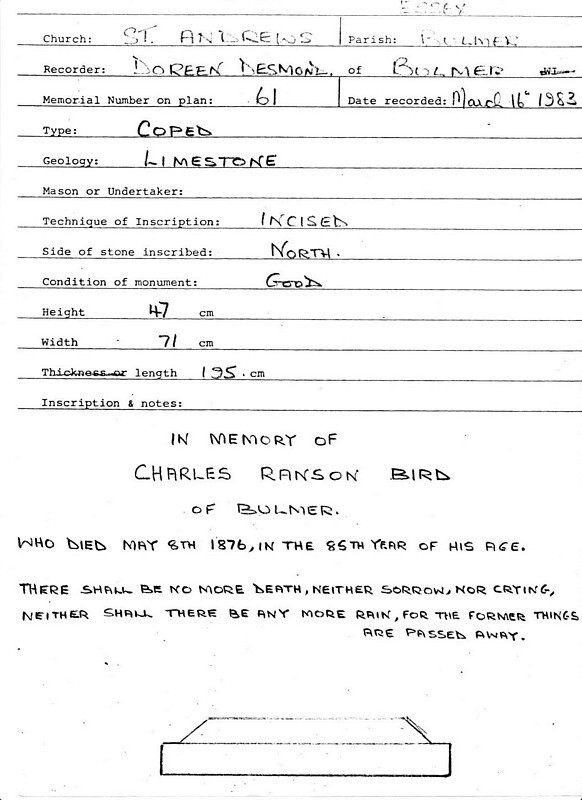 ESSEX
Church: ST. ANDREWS Parish: BULMER
Recorder: DOREEN DESMOND. of BULMER
Memorial Number on plan: 61 Date recorded: March 16th 1983
Type: COPED
Geology: LIMESTONE
Mason or Undertaker:
Technique of Inscription: INCISED
Side of stone inscribed: NORTH.
Condition of monument: GOOD
Height 47 cm
Width 71 cm
Thickness or length 195. cm
Inscription & notes:
IN MEMORY OF
CHARLES RANSON BIRD
OF BULMER.
WHO DIED MAY 8TH 1876, IN THE 85TH YEAR OF HIS AGE.
THERE SHALL BE NO MORE DEATH, NEITHER SORROW, NOR CRYING,
NEITHER SHALL THERE BE ANY MORE RAIN, FOR THE FORMER THINGS
ARE PASSED AWAY.